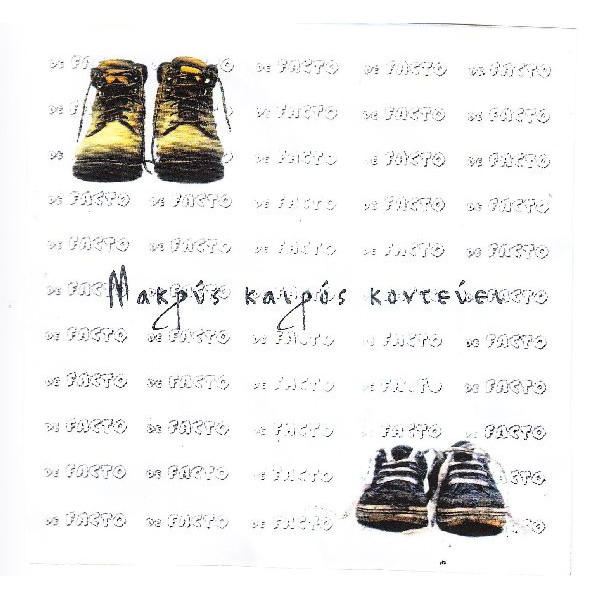 DE FA O DE FACTO DE FACTO DE FACTO
DE F DE FACTO DE FACTO DE FACTO
DE DE FACTO DE FACTO DE FACTO
DE FACTO DE FACTO DE FACTO DE FACTO DE FACTO
DE FACTO DE FACTO DE FACTO DE FACTO DE FACTO
DE FACTO DE FACTO DE FACTO DE FACTO DE FACTO
Μακρύς καιρός κοντεύει
DE FACTO DE FACTO DE FACTO DE FACTO DE FACTO
DE FACTO DE FACTO DE FACTO DE FACTO DE FACTO
DE FACTO DE FACTO DE FACTO DE FACTO DE FACTO
DE FACTO DE FACTO DE FACTO CTO
DE FACTO DE FACTO DE FACTO O